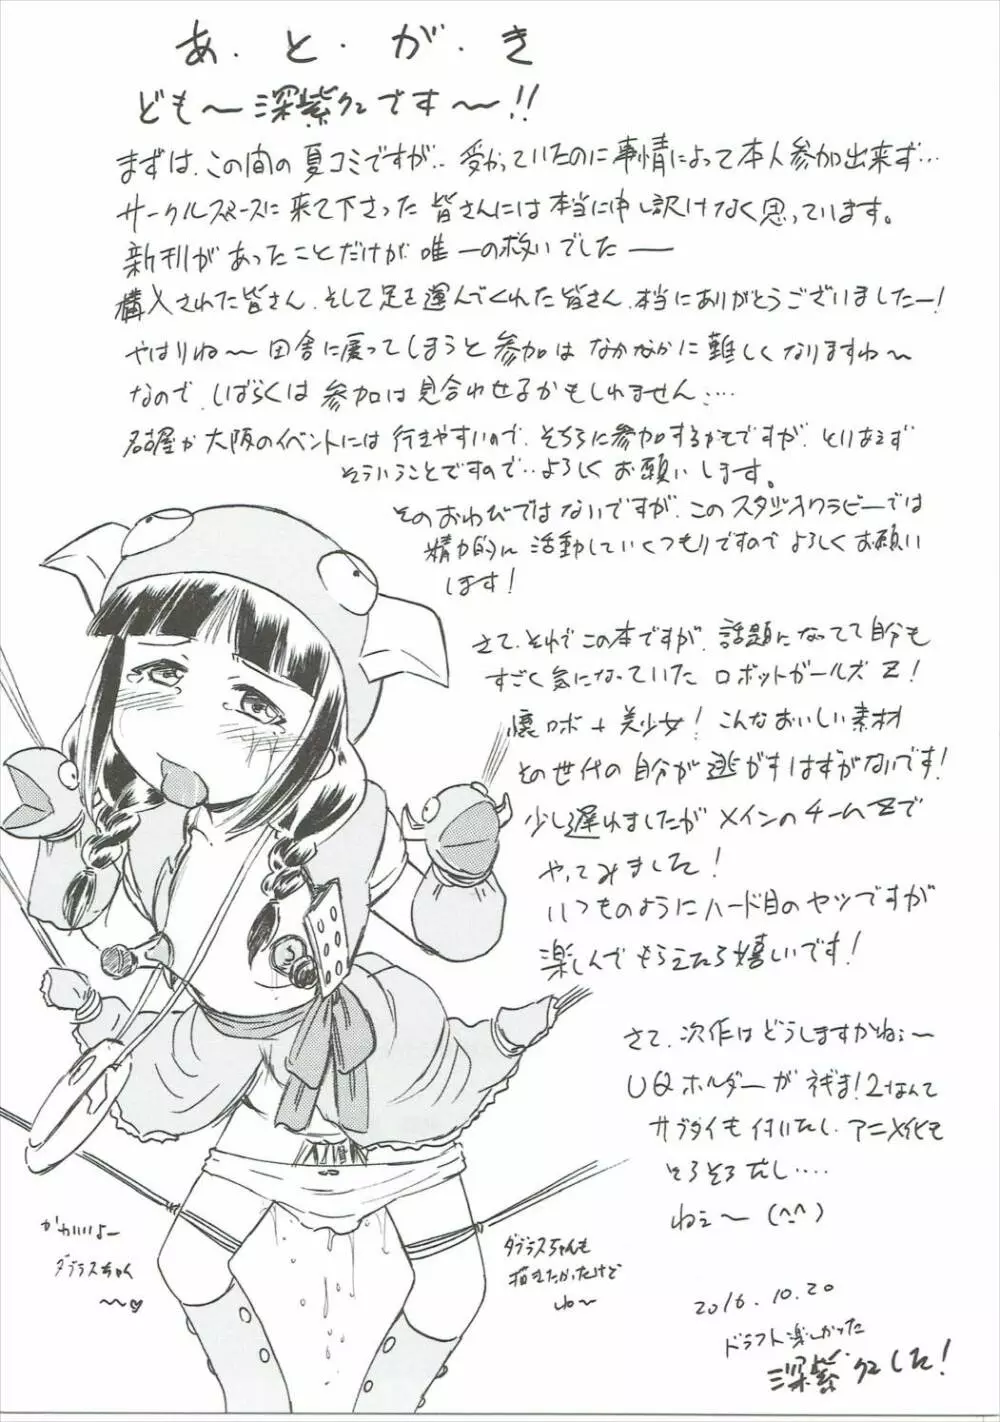 あ・と・が・き
ども〜深紫クニです〜!!
まずは、この間の夏コミですが‥受かっていたのに事情によって本人参加出来ず…
サークルスペースに来て下さった皆さんには本当に申し訳けなく思っています。
新刊があったことだけが唯一の救いでした――
購入された皆さん、そして足を運んでくれた皆さん、本当にありがとうございましたー!
やはりね〜 田舎に戻ってしまうと参加はなかなかに難しくなりますね〜
なので、しばらくは参加は見合わせるかもしれません‥‥
名古屋か大阪のイベントには行きやすいので、そちらに参加するかもですが、とりあえず
そういうことですので‥よろしくお願いします。
そのおわびではないですが、このスタジオワラビーでは
精力的に活動していくつもりですのでよろしくお願い
します!
さて、それでこの本ですが、話題になってて自分も
すごく気になっていたロボットガールズZ!
懐ロボ+美少女! こんなおいしい素材
その世代の自分が逃がすはずがないです!
少し遅れましたがメインのチームZで
やってみました!
いつものようにハード目のヤツですが
楽しんでもらえたら嬉しいです!
さて、次作はどうしますかねぇ〜
UQホルダーがネギま!2なんて
サブタイも付いたし、アニメ化も
そろそろだし‥‥
ねぇ〜 (^-^)
かわいいよー
ダブラスちゃん
〜〜♡
ダブラスちゃんも
描きたかったけど
ね〜
2016.10.20
ドラフト楽しかった
深紫クニでした!